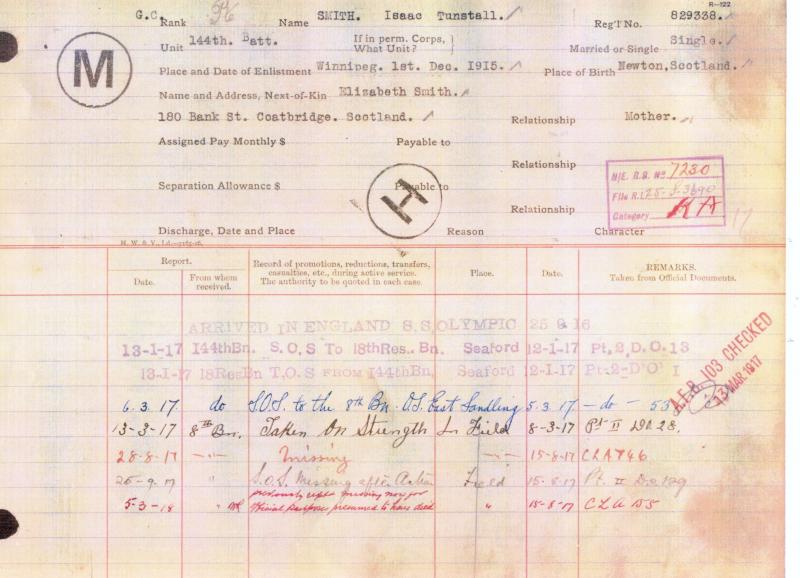 R-122
G.C. Rank Name SMITH. Isaac Tunstall. Reg'l No. 829338.
Unit 144th. Batt. If in perm. Corps, What Unit? Married or Single Single.
M
Place and Date of Enlistment Winnipeg. 1st. Dec. 1915. Place of Birth Newton, Scotland.
Name and Address, Next-of-Kin Elizabeth Smith.
180 Bank St. Coatbridge. Scotland. Relationship Mother.
Assigned Pay Monthly $ Payable to
Relationship
N/E. R.B. No 7230
File R.L. 25-S-3690
Category KA
17
Separation Allowance $ Payable to
H
Relationship
Discharge, Date and Place Reason Character
H. W. & V., Ld.
Report. Record of promotions, reductions, transfers, casualties, etc., during active service. The authority to be quoted in each case. Place. Date. REMARKS. Taken from Official Documents.
Date. From whom received.
ARRIVED IN ENGLAND S.S. OLYMPIC 25 9 16
13-1-17 144th Bn. S.O.S To 18th Res. Bn. Seaford 12-1-17 Pt. 2, D.O. 13
13-1-17 18 Res Bn T.O.S FROM 144th Bn. Seaford 12-1-17 Pt-2-D'O' I
A.F.B. 103 CHECKED
13 MAR 1917
6.3.17. do S.O.S. to the 8th Bn. O.S. East Sandling 5.3.17. - do - 53
13-3-17 8th Bn. Taken On Strength In Field 8-3-17 Pt II DO 28.
28-8-17 -"- Missing -"- 15-8-17 CLA 746
25-9-17 " S.O.S. Missing after Action Field 15-8-17 Pt. II D.O. 129
5-3-18 " previously reptd missing now for official purposes presumed to have died " 15-8-17 CLA 155